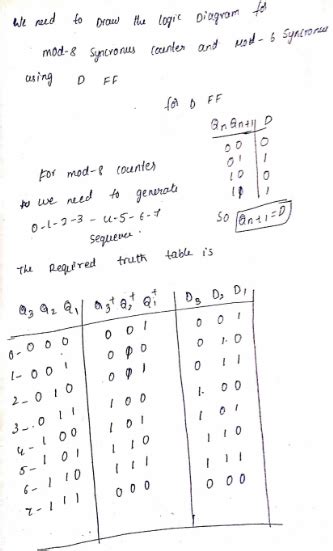 We need to Draw the Logic Diagram for
mod-8 Syncronus Counter and Mod-6 Syncronus
using D FF
for D FF
Qn Qn+1 | D
0 0 | 0
0 1 | 1
1 0 | 0
1 1 | 1
So Qn+1 = D
For mod-8 counter
we need to generate
0-1-2-3-4-5-6-7
Sequence.
The Required truth table is
Q3 Q2 Q1 | Q3+ Q2+ Q1+ | D3 D2 D1
0- 0 0 0 | 0 0 1 | 0 0 1
1- 0 0 1 | 0 1 0 | 0 1 0
2- 0 1 0 | 0 1 1 | 0 1 1
3- 0 1 1 | 1 0 0 | 1 0 0
4- 1 0 0 | 1 0 1 | 1 0 1
5- 1 0 1 | 1 1 0 | 1 1 0
6- 1 1 0 | 1 1 1 | 1 1 1
7- 1 1 1 | 0 0 0 | 0 0 0